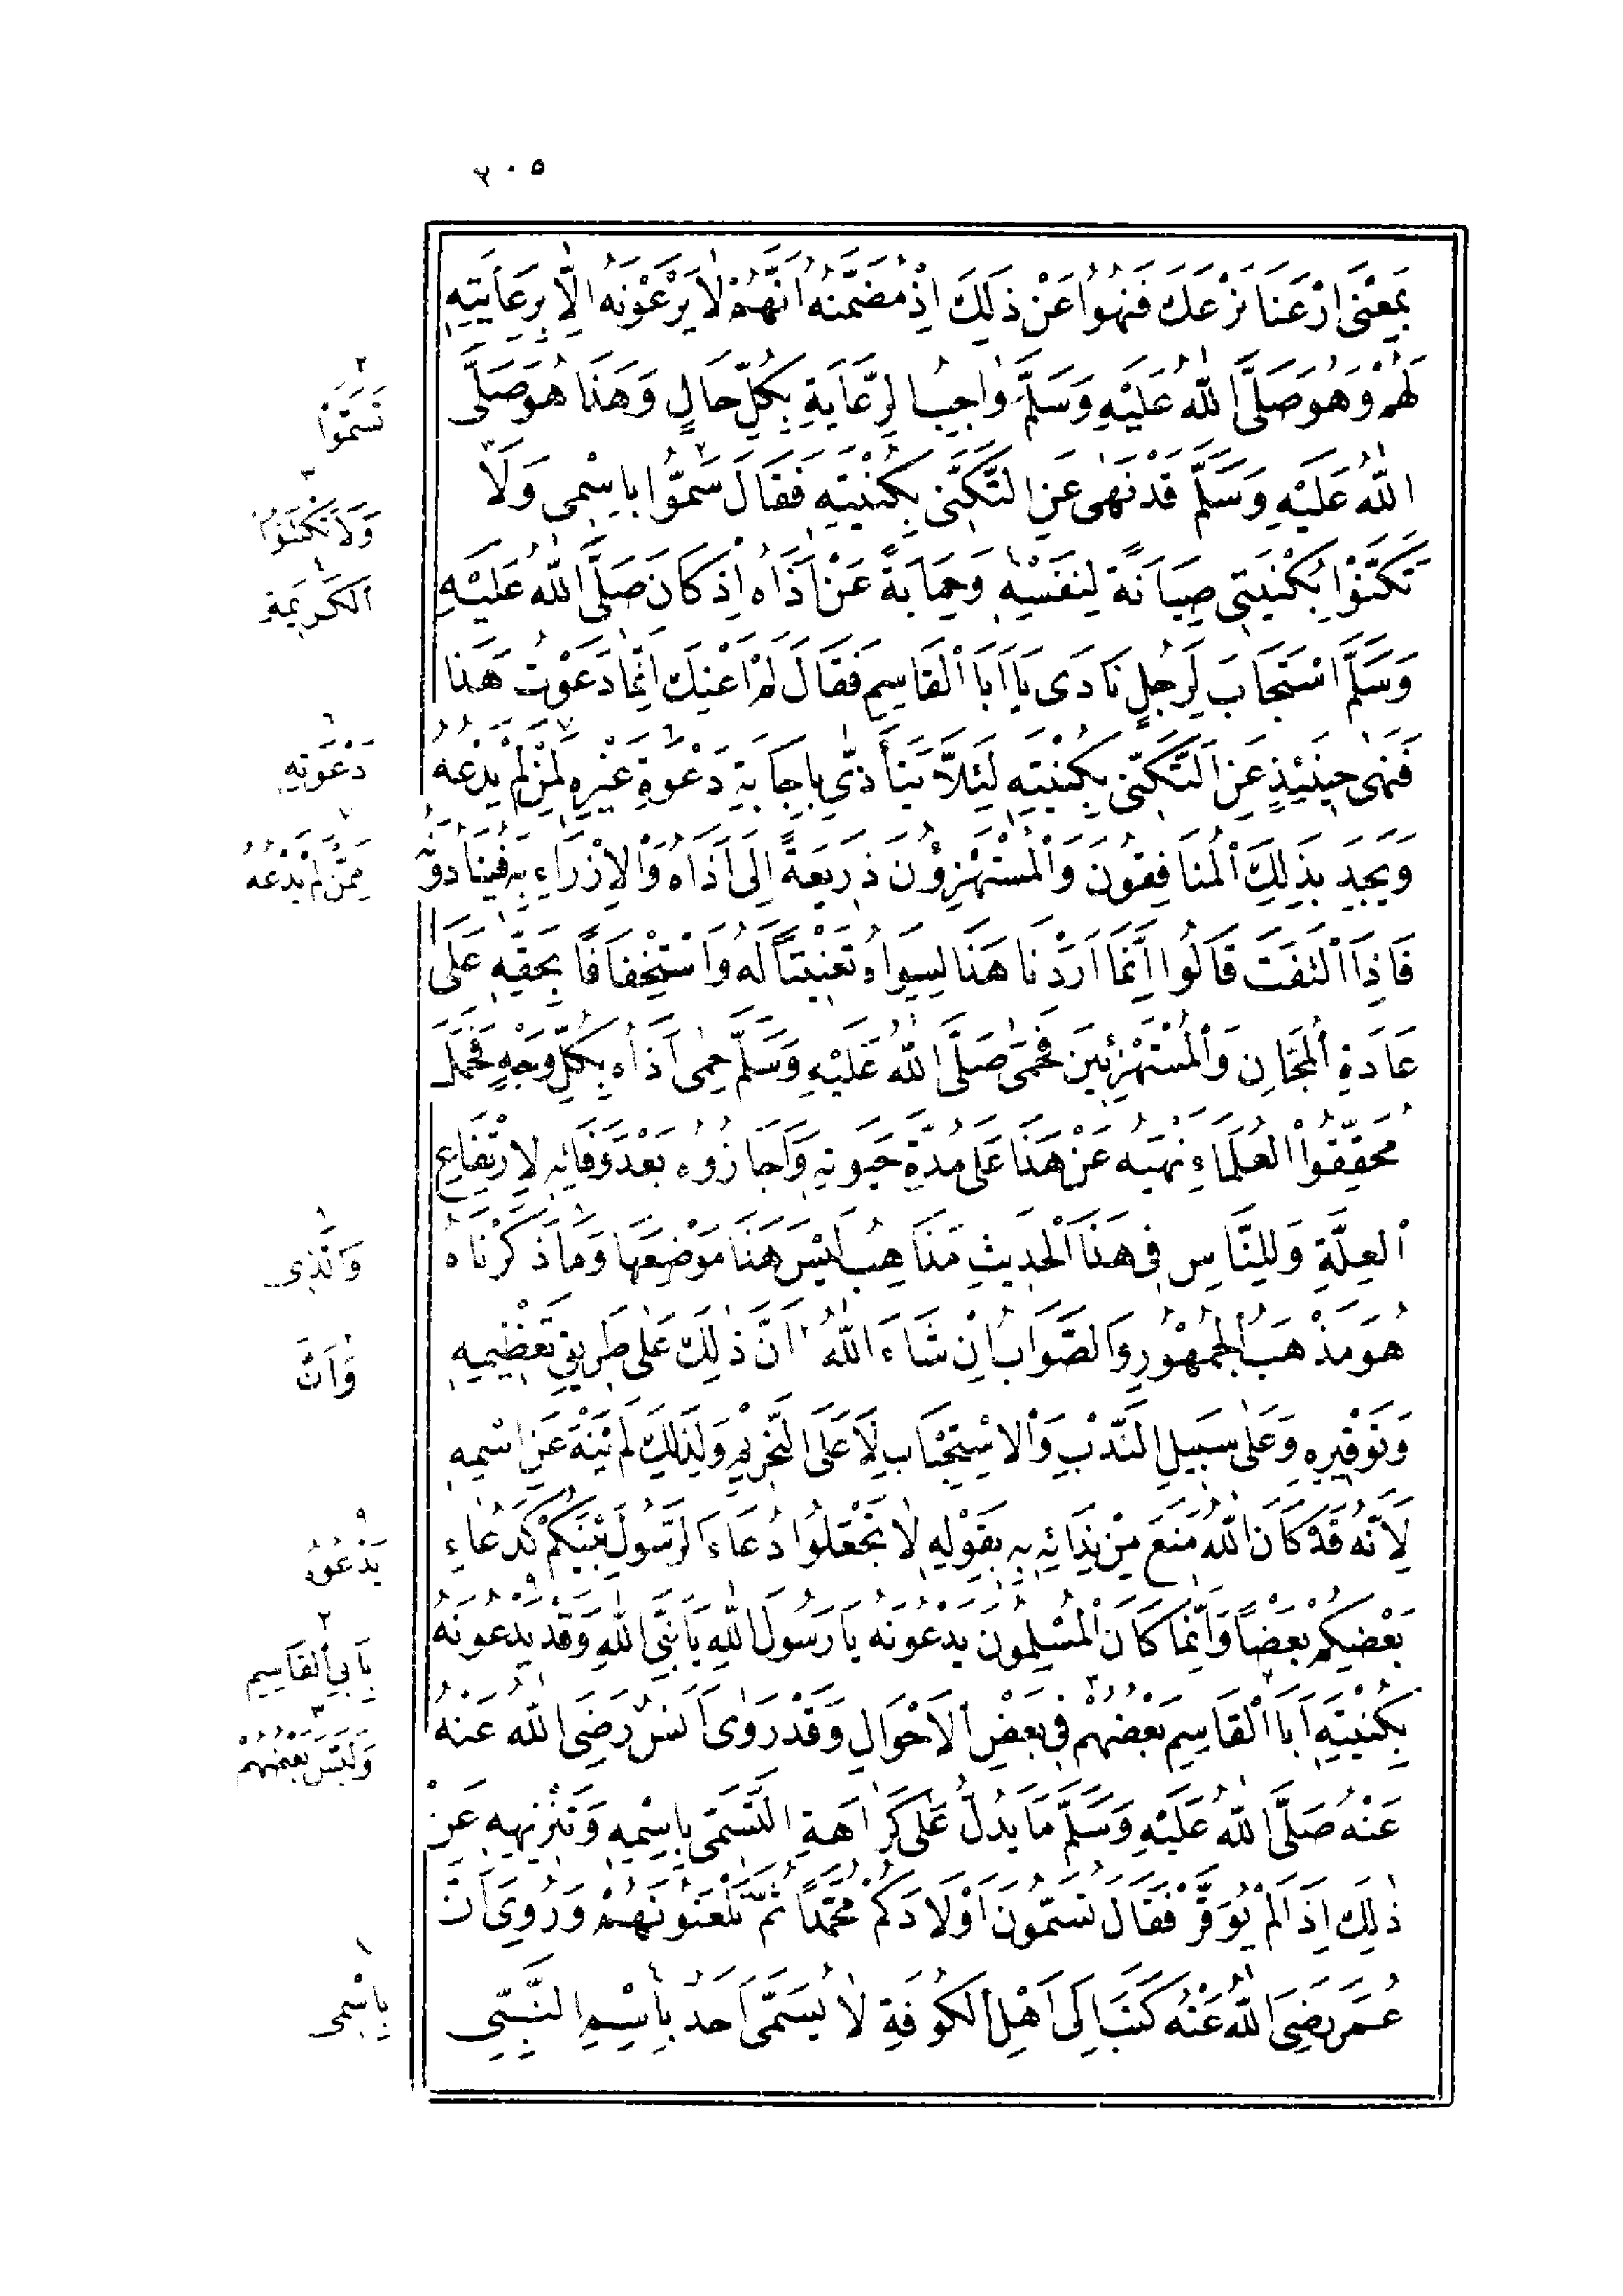 ٢٠٥
بِمَعْنَى ارْعَنَا نَرْعَكَ فَنُهُوا عَنْ ذَلِكَ اِذْ مُضَمَّنُهُ اَنَّهُمْ لَا يَرْعَوْنَهُ اِلَّا بِرِعَايَتِهِ
لَهُمْ وَهُوَ صَلَّى اللهُ عَلَيْهِ وَسَلَّمَ وَاجِبُ الرِّعَايَةِ بِكُلِّ حَالٍ وَهَذَا هُوَ صَلَّى
اللهُ عَلَيْهِ وَسَلَّمَ قَدْ نَهَى عَنِ التَّكَنِّي بِكُنْيَتِهِ فَقَالَ سَمُّوا بِاسْمِي وَلَا
تَكَنَّوْا بِكُنْيَتِي صِيَانَةً لِنَفْسِهِ وَحِمَايَةً عَنْ اَذَاهُ اِذْ كَانَ صَلَّى اللهُ عَلَيْهِ
وَسَلَّمَ اسْتَجَابَ لِرَجُلٍ نَادَى يَا اَبَا الْقَاسِمِ فَقَالَ لَمْ اَعْنِكَ اِنَّمَا دَعَوْتُ هَذَا
فَنَهَى حِينَئِذٍ عَنِ التَّكَنِّي بِكُنْيَتِهِ لِئَلَّا يَتَأَذَّى بِاِجَابَةِ دَعْوَةِ غَيْرِهِ لِمَنْ لَمْ يَدْعُهُ
وَيَجِدَ بِذَلِكَ الْمُنَافِقُونَ وَالْمُسْتَهْزِؤُنَ ذَرِيعَةً اِلَى اَذَاهُ وَالْاِزْرَاءِ بِهِ فَيُنَادُونَهُ
فَاِذَا الْتَفَتَ قَالُوا اِنَّمَا اَرَدْنَا هَذَا لِسِوَاهُ تَعْنِيتًا لَهُ وَاسْتِخْفَافًا بِحَقِّهِ عَلَى
عَادَةِ الْمُجَّانِ وَالْمُسْتَهْزِئِينَ فَحَمَى صَلَّى اللهُ عَلَيْهِ وَسَلَّمَ حِمَى اَذَاهُ بِكُلِّ وَجْهٍ فَحَمَلَ
مُحَقِّقُوا الْعُلَمَاءِ نَهْيَهُ عَنْ هَذَا عَلَى مُدَّةِ حَيَوتِهِ وَاَجَازُوهُ بَعْدَ وَفَاتِهِ لِارْتِفَاعِ
الْعِلَّةِ وَلِلنَّاسِ فِي هَذَا الْحَدِيثِ مَذَاهِبُ لَيْسَ هَذَا مَوْضِعَهَا وَمَا ذَكَرْنَاهُ
هُوَ مَذْهَبُ الْجُمْهُورِ وَالصَّوَابُ اِنْ شَاءَ اللهُ اَنَّ ذَلِكَ عَلَى طَرِيقِ تَعْظِيمِهِ
وَتَوْقِيرِهِ وَعَلَى سَبِيلِ النَّدْبِ وَالْاِسْتِحْبَابِ لَا عَلَى التَّحْرِيمِ وَلِذَلِكَ لَمْ يَنْهَ عَنِ اسْمِهِ
لِاَنَّهُ قَدْ كَانَ اللهُ مَنَعَ مِنْ نِدَائِهِ بِهِ بِقَوْلِهِ لَا تَجْعَلُوا دُعَاءَ الرَّسُولِ بَيْنَكُمْ كَدُعَاءِ
بَعْضِكُمْ بَعْضًا وَاِنَّمَا كَانَ الْمُسْلِمُونَ يَدْعُونَهُ يَا رَسُولَ اللهِ يَا نَبِيَّ اللهِ وَقَدْ يَدْعُونَهُ
بِكُنْيَتِهِ اَبَا الْقَاسِمِ بَعْضُهُمْ فِي بَعْضِ الْاَحْوَالِ وَقَدْ رَوَى اَنَسٌ رَضِيَ اللهُ عَنْهُ
عَنْهُ صَلَّى اللهُ عَلَيْهِ وَسَلَّمَ مَا يَدُلُّ عَلَى كَرَاهَةِ التَّسَمِّي بِاسْمِهِ وَتَنْزِيهِهِ عَنْ
ذَلِكَ اِذَا لَمْ يُوَقَّرْ فَقَالَ تُسَمُّونَ اَوْلَادَكُمْ مُحَمَّدًا ثُمَّ تَلْعَنُونَهُمْ وَرُوِيَ اَنَّ
عُمَرَ رَضِيَ اللهُ عَنْهُ كَتَبَ اِلَى اَهْلِ الْكُوفَةِ لَا يُسَمَّى اَحَدٌ بِاسْمِ النَّبِيِّ
٢
تَسَمَّوْا
٣
وَلَا تَكْتَنُوا
٤
الْكَرِيمَةِ
٦
دَعْوَتِهِ
٧
مِمَّنْ لَمْ يَدْعُهُ
٨
وَالَّذِي
وَاَنَّ
٩
يَدْعُوهُ
٢
بِاَبِي الْقَاسِمِ
٣
وَلَيْسَ بَعْضُهُمْ
١
بِاسْمِي